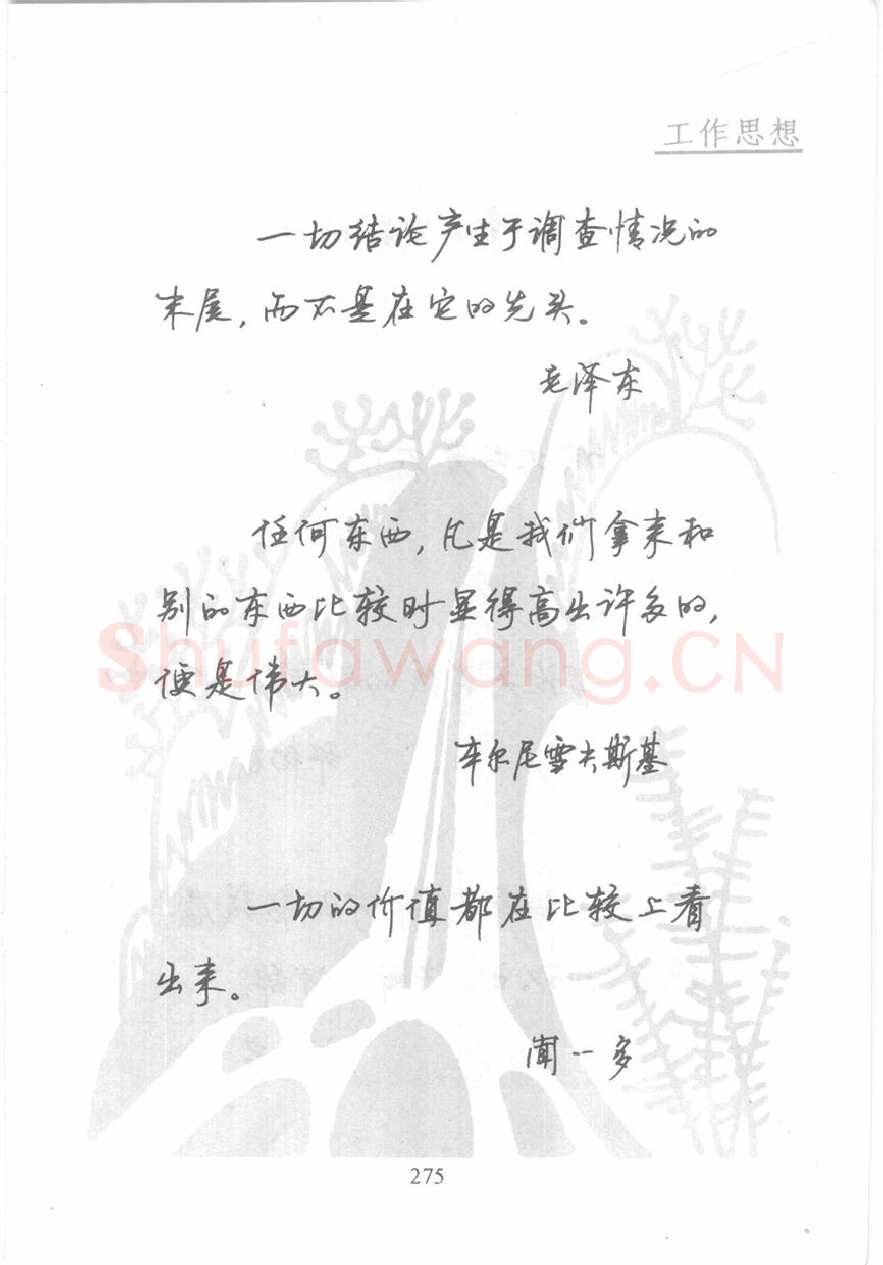 工作思想
一切结论产生于调查情况的
末尾，而不是在它的先头。
毛泽东
任何东西，凡是我们拿来和
别的东西比较时显得高出许多的，
便是伟大。
车尔尼雪夫斯基
一切的价值都在比较上看
出来。
闻一多
Shufawang.CN
275